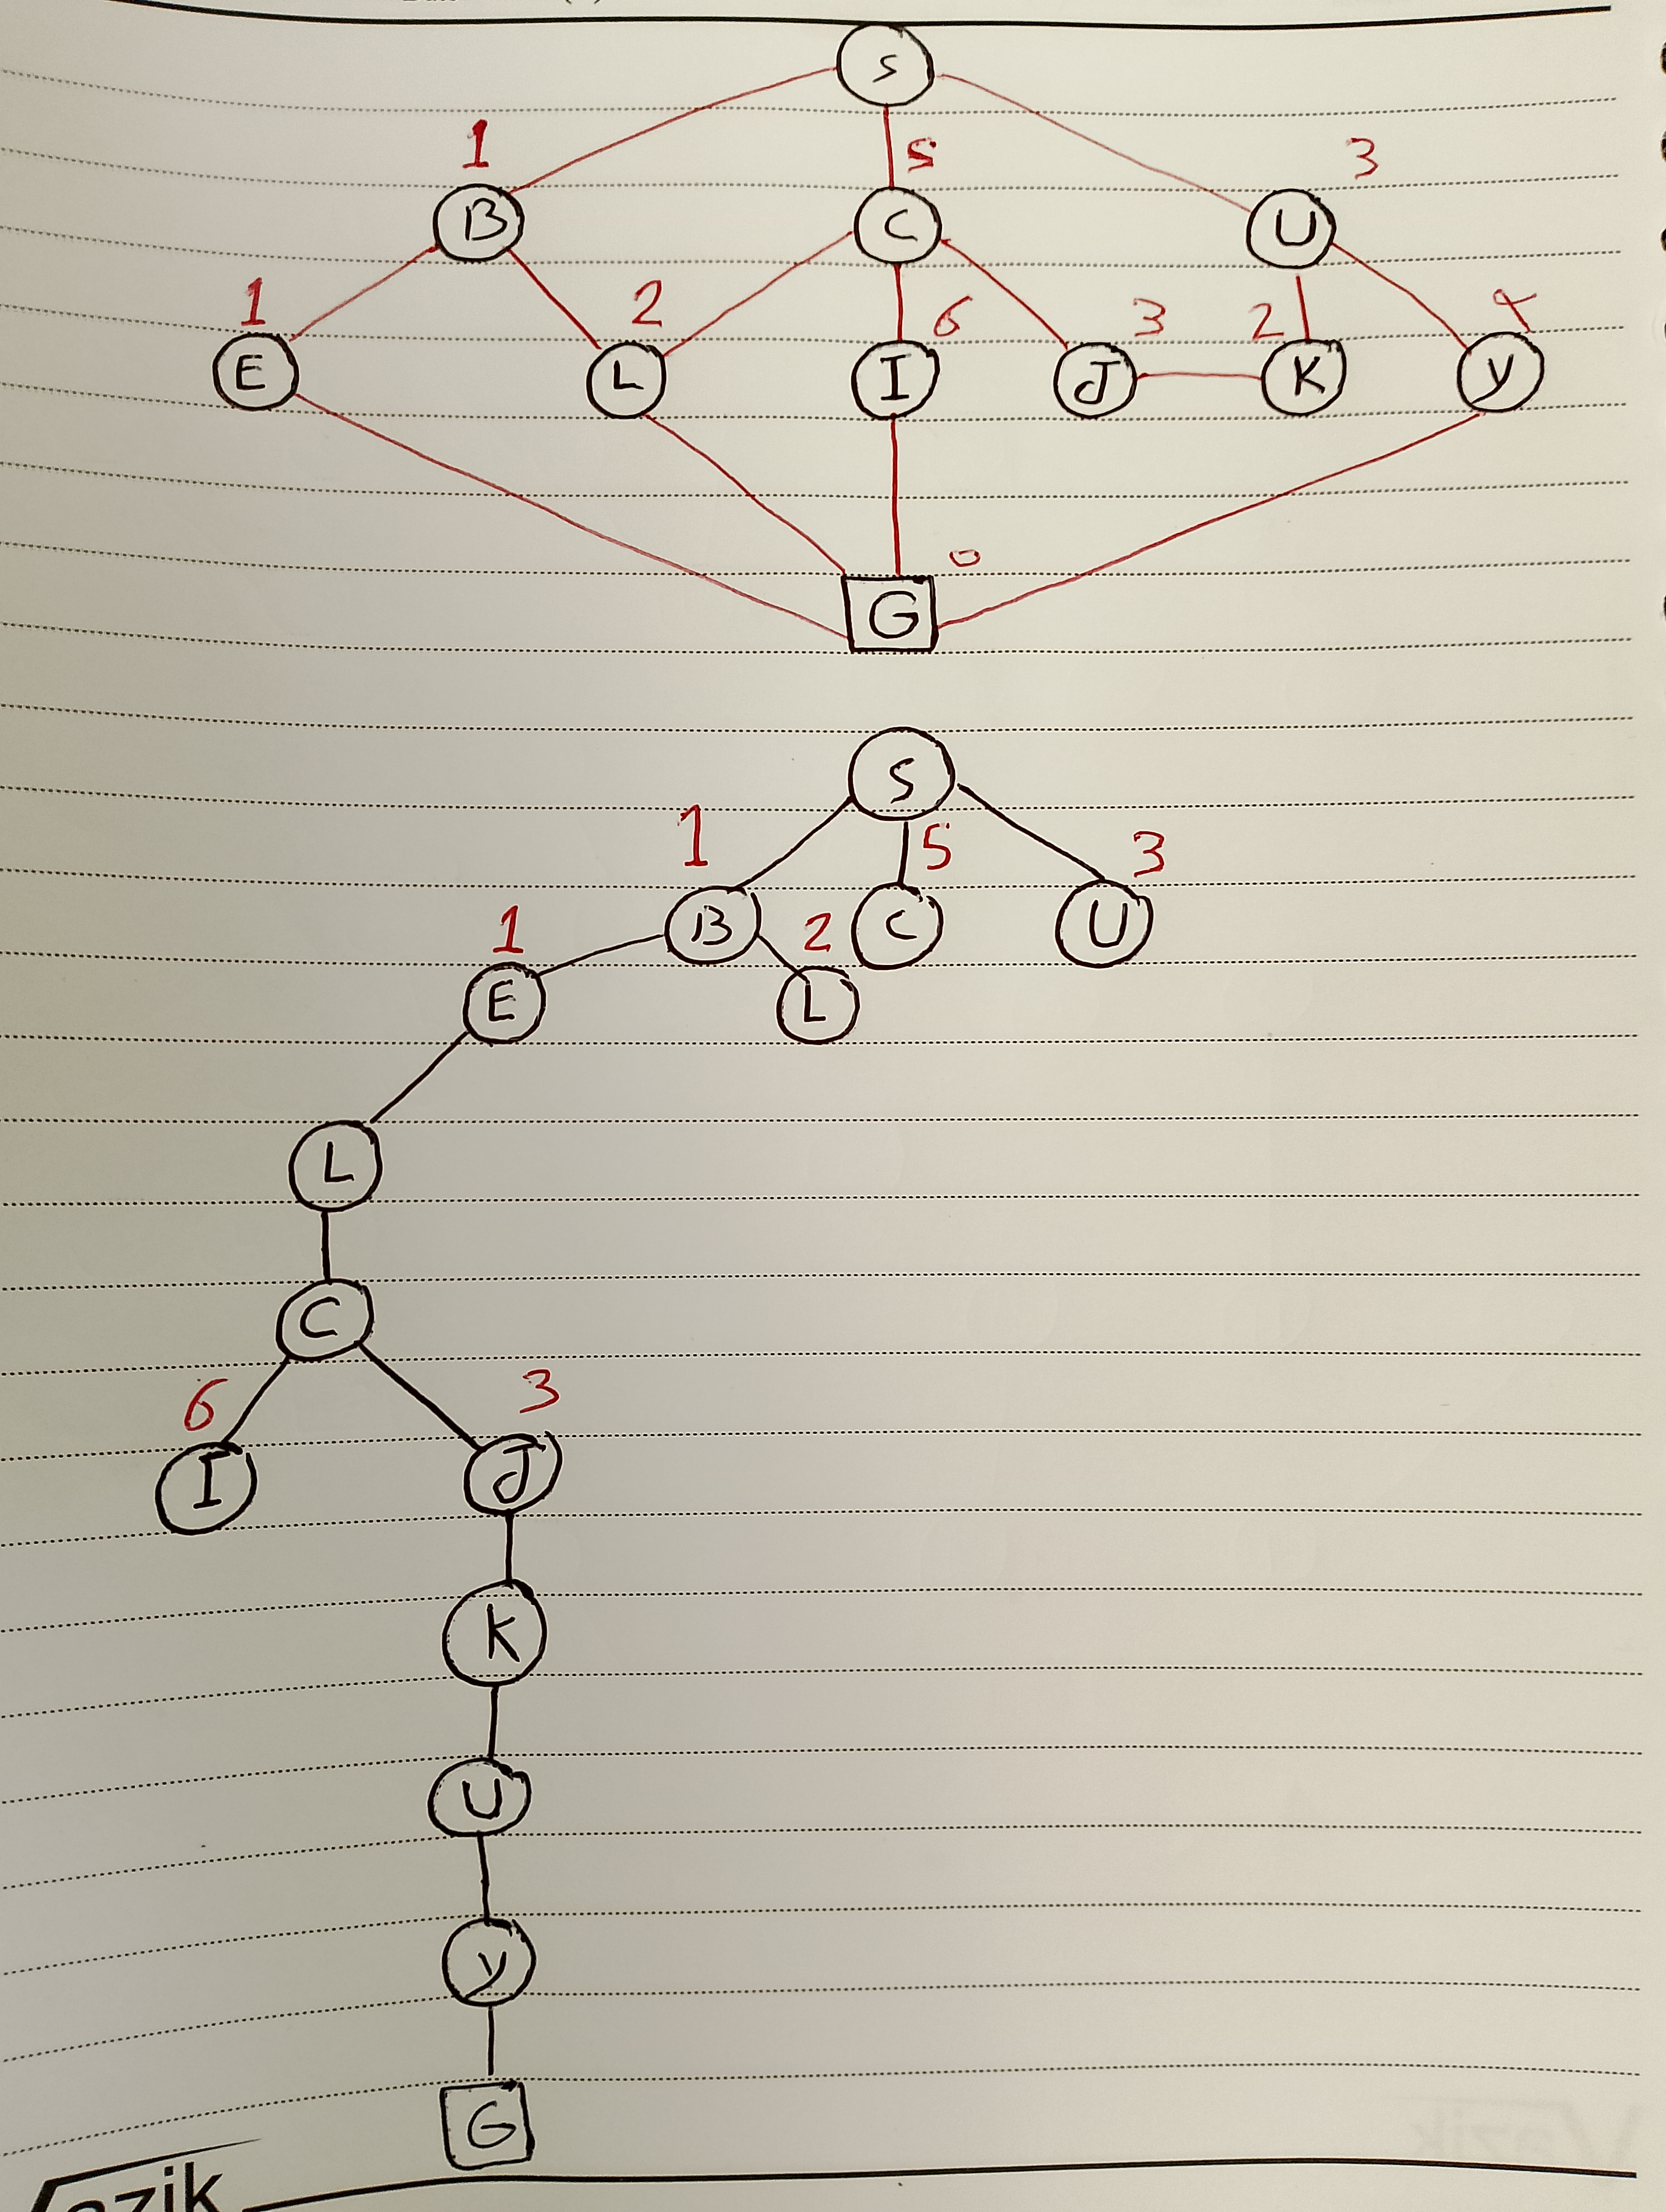 S
1 5 3
B C U
1 2 6 3 2
E L I J K y
0
G
S
1 5 3
B C U
1 2
E L
L
C
6 3
I J
K
U
y
G
azik